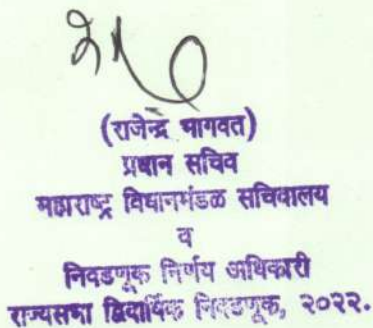 (राजेन्द्र भागवत)
प्रधान सचिव
महाराष्ट्र विधानमंडळ सचिवालय
व
निवडणूक निर्णय अधिकारी
राज्यसभा द्विवार्षिक निवडणूक, २०२२.